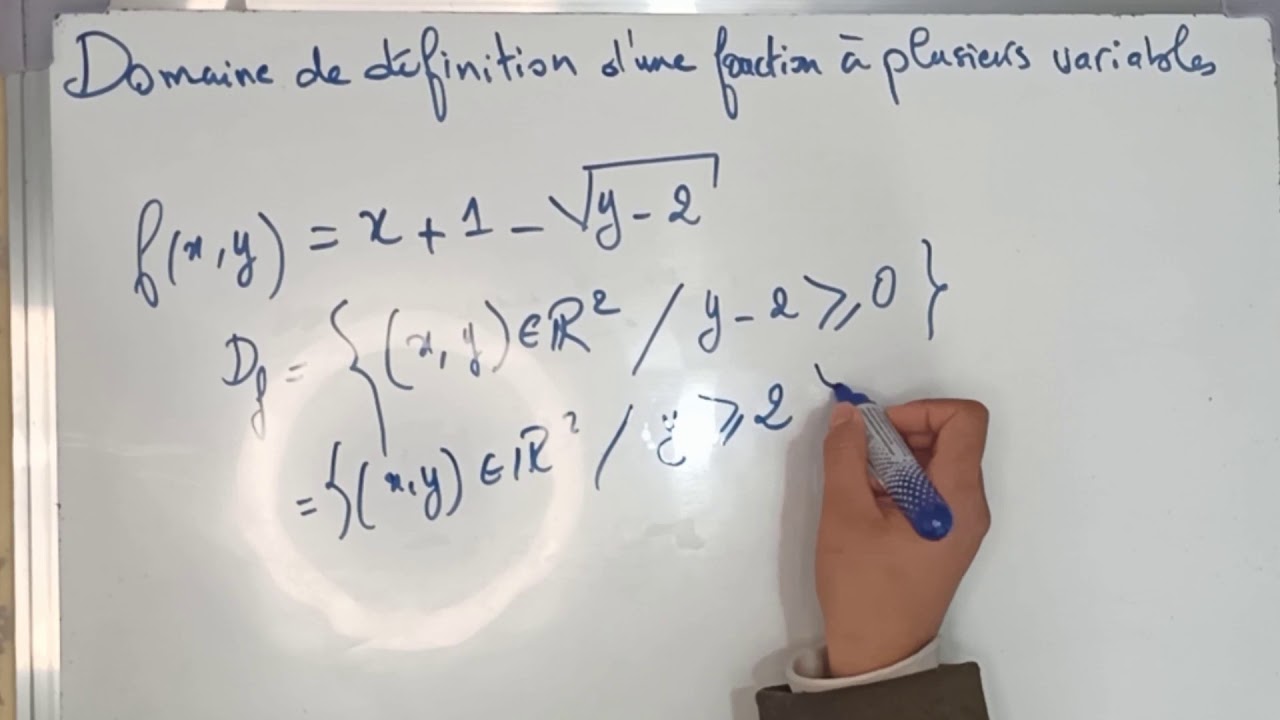 Domaine de définition d'une fonction à plusieurs variables
f(x,y) = x + 1 - √(y - 2)
D_f = { (x, y) ∈ ℝ² / y - 2 ⩾ 0 }
= { (x, y) ∈ ℝ² / y ⩾ 2